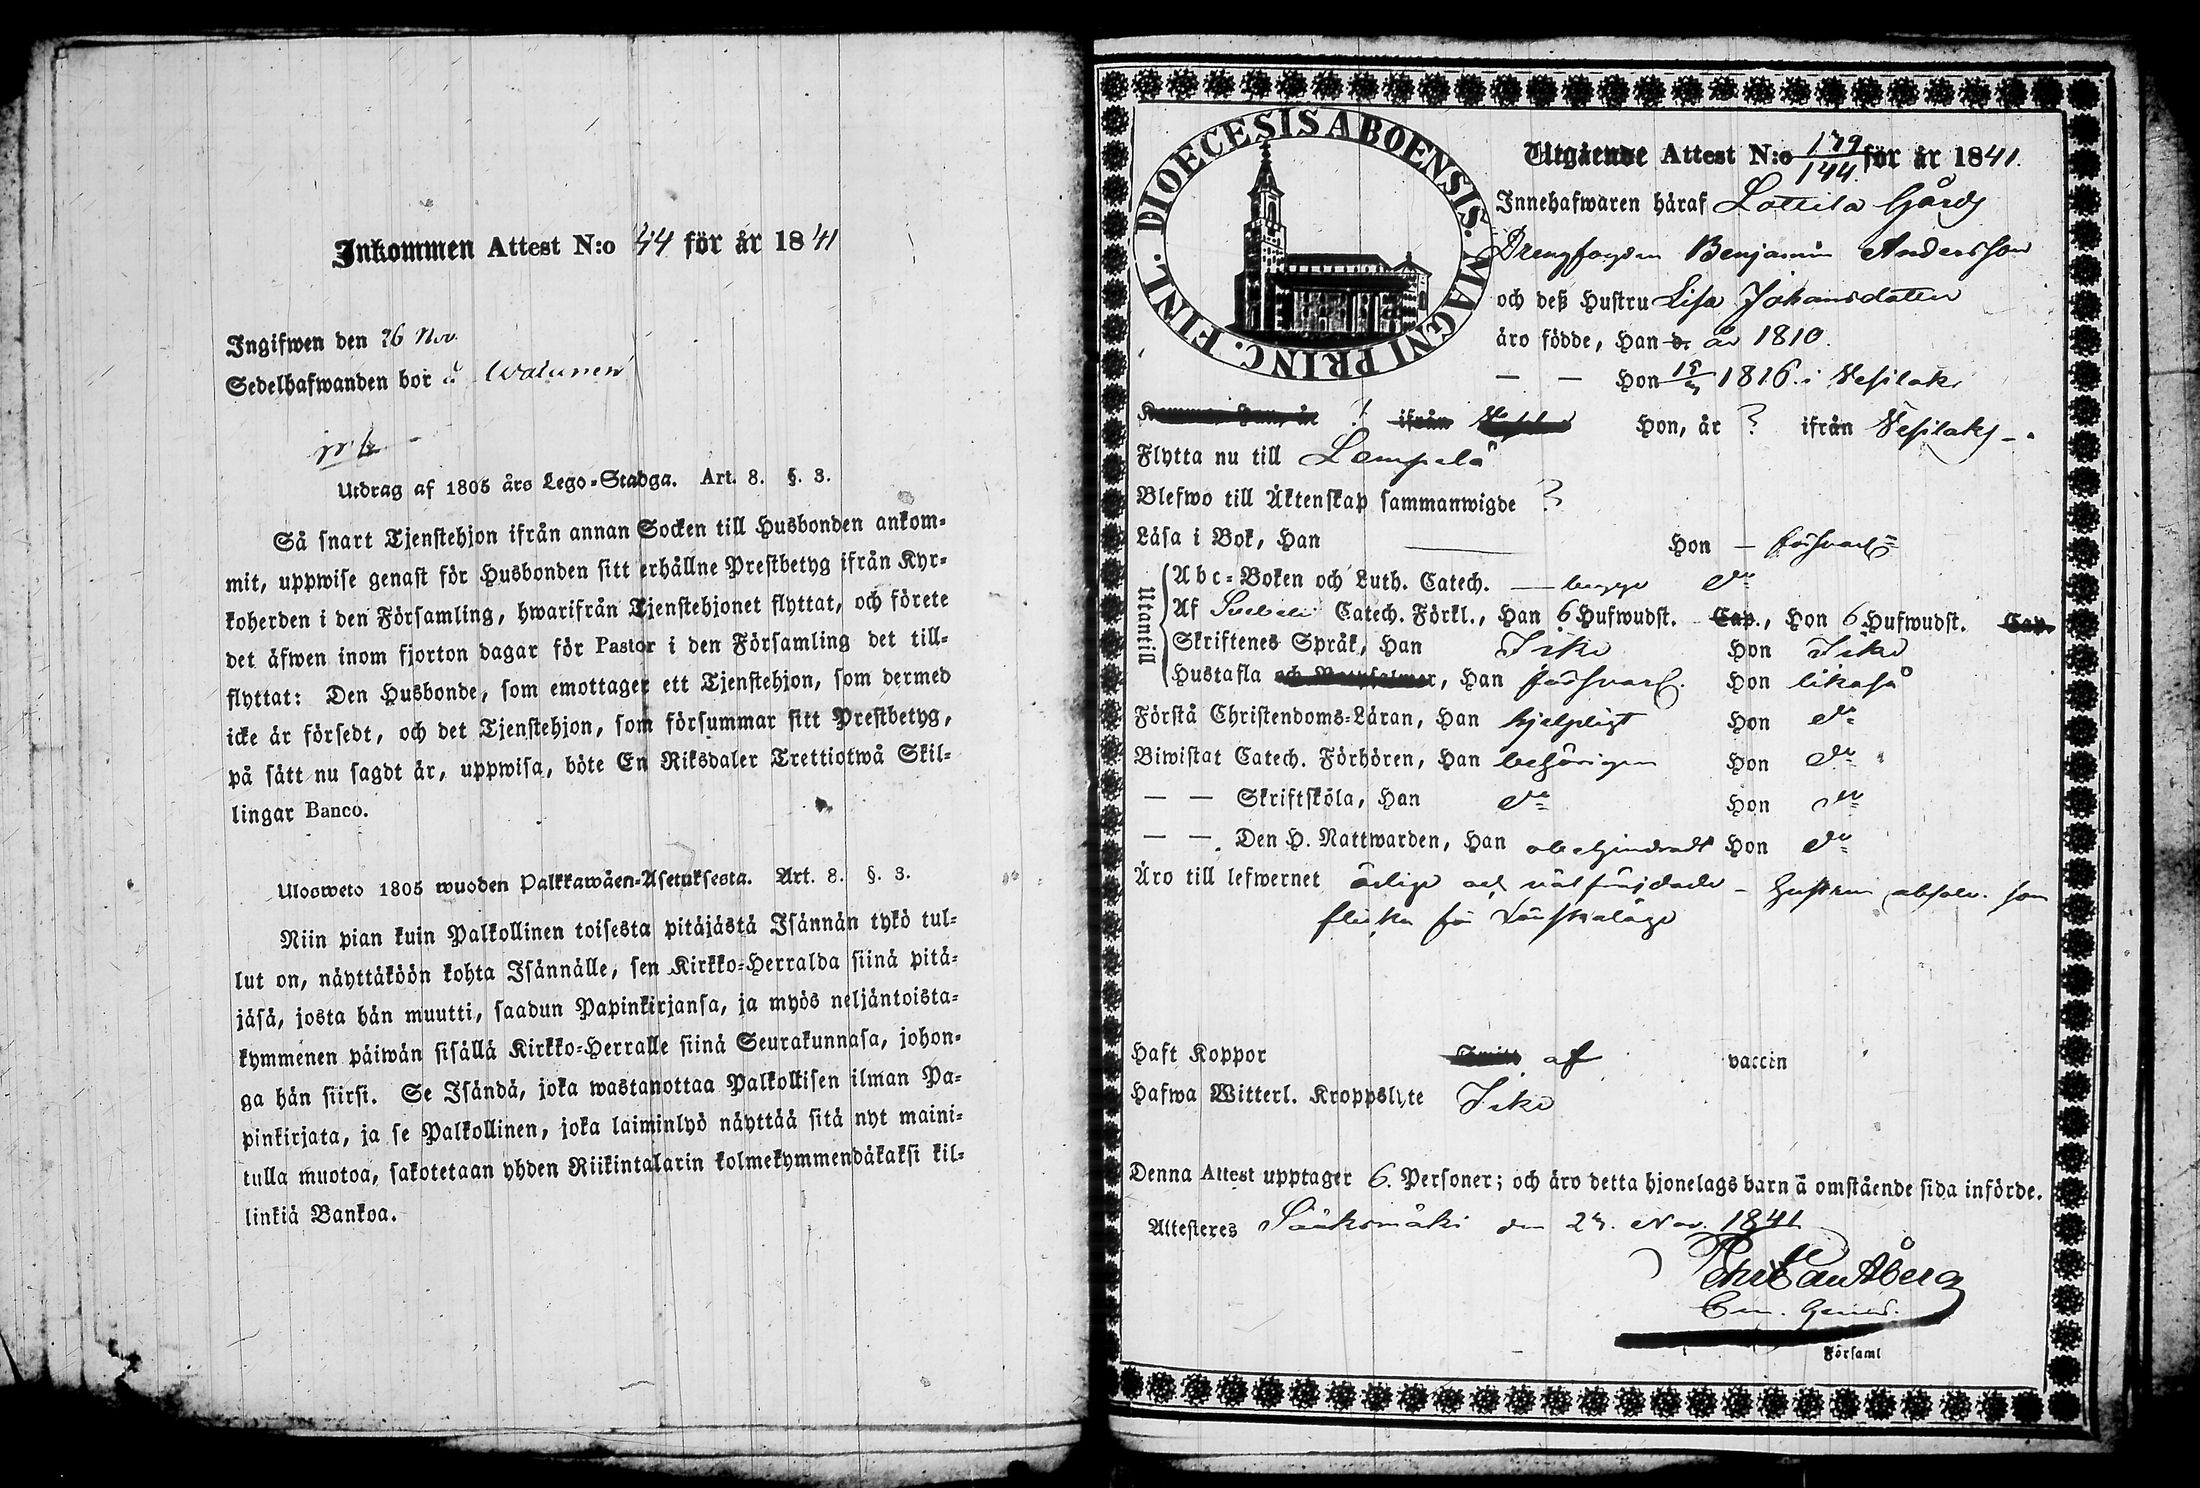 Inkommen Attest N:o 44 för år 1841
Ingifwen den 26 Nov.
Sedelhafwanden bor å Walunen
Utdrag af 1805 års Lego-Stadga. Art. 8. §. 3.
Så snart Tjenstehjon ifrån annan Socken till Husbonden ankom-
mit, uppwise genast för Husbonden sitt erhållne Prestbetyg ifrån Kyr-
koherden i den Församling, hwarifrån Tjenstehjonet flyttat, och förete
det äfwen inom fjorton dagar för Pastor i den Församling det till-
flyttat: Den Husbonde, som emottager ett Tjenstehjon, som dermed
icke är försedt, och det Tjenstehjon, som försummar sitt Prestbetyg,
på sätt nu sagdt är, uppwisa, böte En Riksdaler Trettiotwå Skil-
lingar Banco.
Ulosweto 1805 wuoden Palkkawäen-Asetuksesta. Art. 8. §. 3.
Niin pian kuin Palkollinen toisesta pitäjästä Isännän tykö tul-
lut on, näyttäköön kohta Isännälle, sen Kirkko-Herralda siinä pitä-
jäsä, josta hän muutti, saadun Papinkirjansa, ja myös neljäntoista-
kymmenen päiwän sisällä Kirkko-Herralle siinä Seurakunnasa, johon-
ga hän siirsi. Se Isändä, joka wastanottaa Palkollisen ilman Pa-
pinkirjata, ja se Palkollinen, joka laiminlyö näyttää sitä nyt maini-
tulla muotoa, sakotetaan yhden Riikintalarin kolmekymmendäkaksi kil-
linkiä Bankoa.
DIOECESIS ABOENSIS. MAGNI PRINC. FINL.
Utgående Attest N:o 179/144. för år 1841.
Innehafwaren häraf Lottila Gårds
Drengfogden Benjamin Andersson
och deß Hustru Lisa Johansdotter
äro födde, Han d. år 1810.
— — Hon 1816. i Vesilaks
Kommo Han, år ? ifrån Hon, år ? ifrån Vesilaks
Flytta nu till Lempälä
Blefwo till Äktenskap sammanwigde ?
Läsa i Bok, Han — Hon — försvarl.
Utantill
Abc-Boken och Luth. Catech. — begge do
Af Svebeli Catech. Förkl., Han 6 Hufwudst. Cap., Hon 6 Hufwudst. Cap.
Skriftenes Språk, Han Icke Hon Icke
Hustafla och , Han försvarl. Hon likaså
Förstå Christendoms-Läran, Han hjelpligt Hon do
Biwistat Catech. Förhören, Han behörigen Hon do
— — Skriftsköla, Han do Hon do
— — Den H. Nattwarden, Han obehindradt Hon do
Äro till lefwernet ärlige och välfräjdade – Hustrun absolv. som
flicka för Lönskaläge
Haft Koppor af vaccin
Hafwa Witterl. Kroppslyte Icke
Denna Attest upptager 6. Personer; och äro detta hjonelags barn å omstående sida införde.
Attesteres Sääksmäki den 24. Nov. 1841
Församl